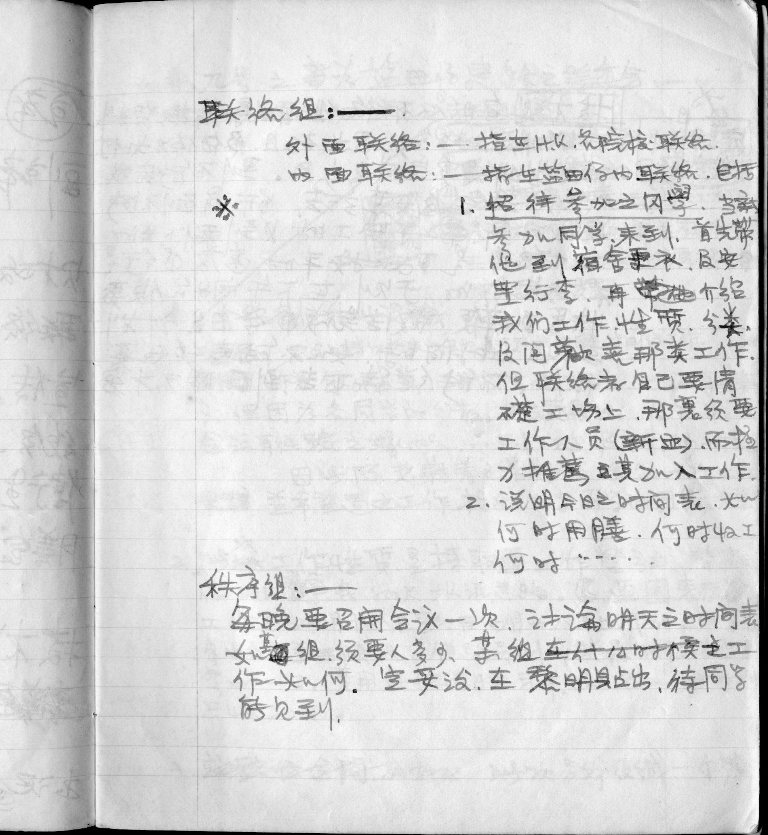 联络组:——
外面联络:— 指在H.K.各院校联络.
内面联络:— 指在蓝田仔内联络.包括
※ 1. 招待参加之同學.当
参加同学来到.首先带
他到宿舍 .及安
行李.再 介绍
我们工作性质.分类.
及问 喜那类工作.
但联络 自己要清
楚工场上.那裏须要
工作人员( ).而极
力推荐其加入工作.
2. 说明今日之时间表.如
何时用膳.何时收工
何时……
秩序组:——
每晚要召開会议一次.讨论明天之时间表
如 组.须要人多少.某组在什么时候之工
作如何.定妥後.在黎明 出,待同学
能见到.